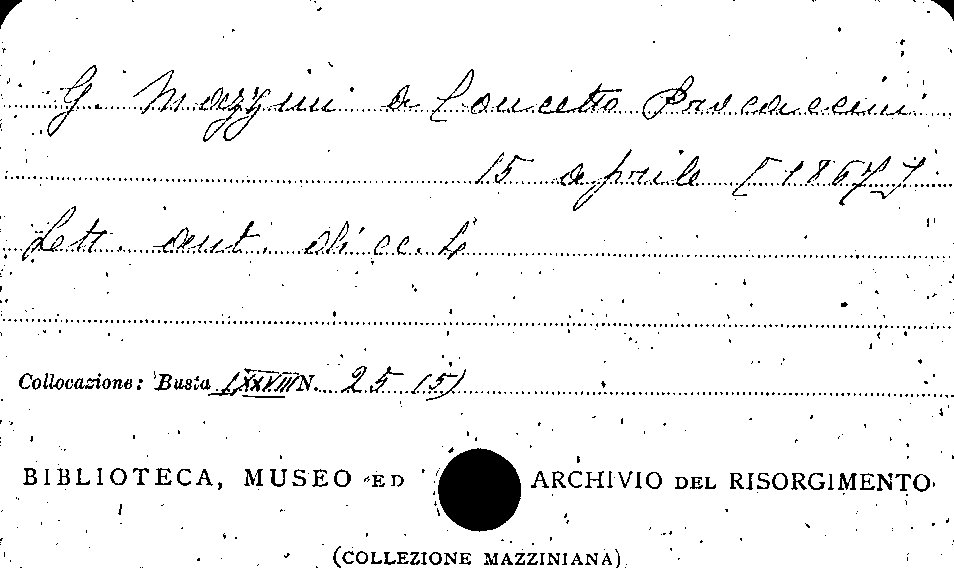 G. Mazzini a Concetto Procaccini
15 aprile [1867]
Lett. aut. di cc. 4
Collocazione: Busta LXXVIII N. 25 (5)
BIBLIOTECA, MUSEO ED ARCHIVIO DEL RISORGIMENTO
(COLLEZIONE MAZZINIANA)